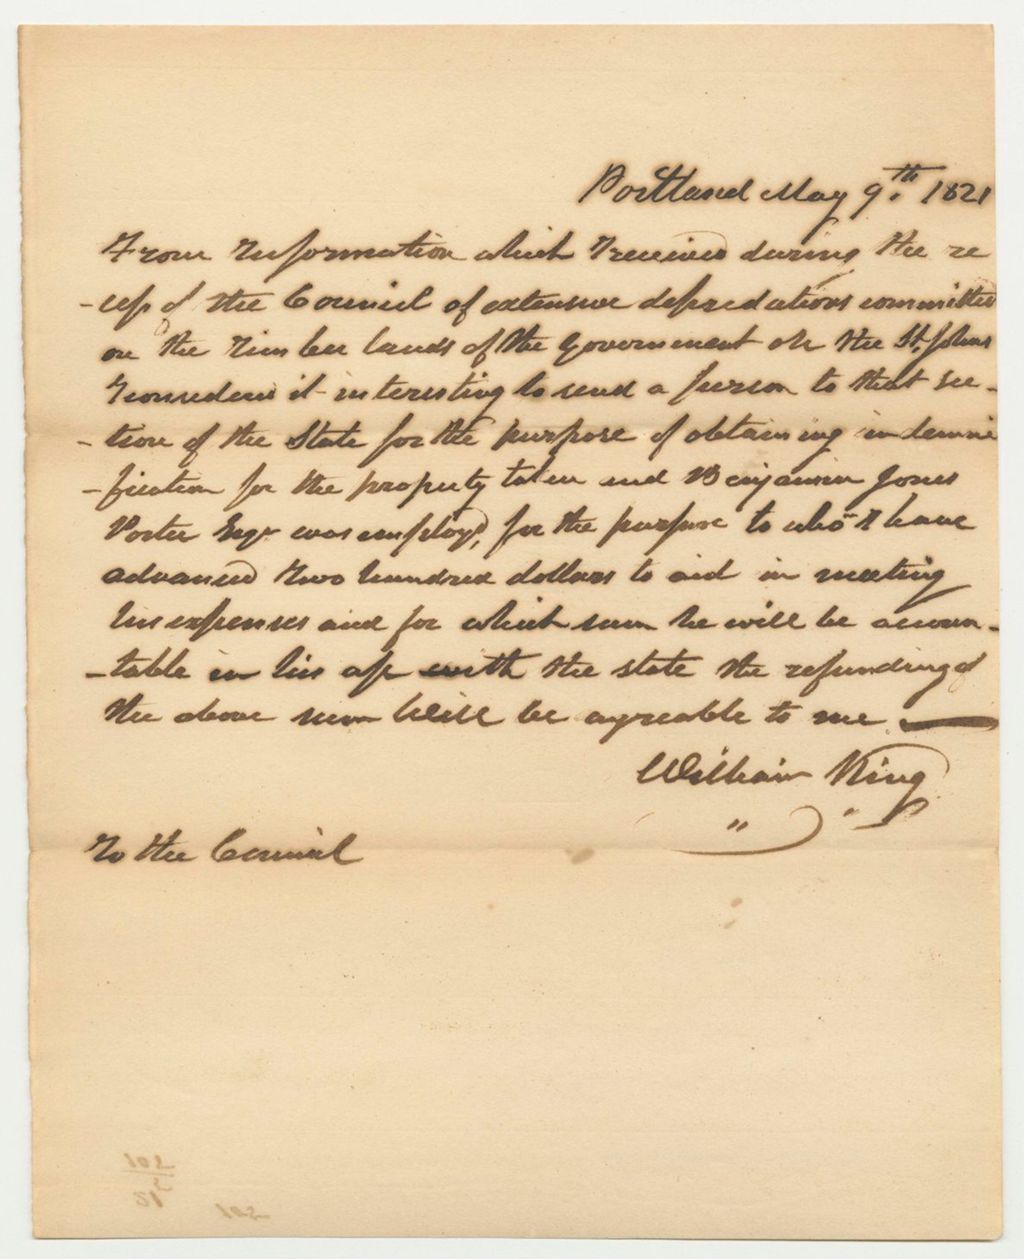 Portland May 9th. 1821
From Information which I received during the re
-cess of the Council of extensive depredations committed
on the timber lands of the Government on the St. Johns
I considered it interesting to send a person to that sec-
-tion of the State for the purpose of obtaining indemni
-fication for the property taken and Benjamin Jones
Porter Esqr was employd, for the purpose to whom I have
advanced two hundred dollars to aid in meeting
his expenses and for which sum he will be accoun-
-table in his with the state the refunding of
the above sum Will be agreable to me
William King
To the Council
102
102